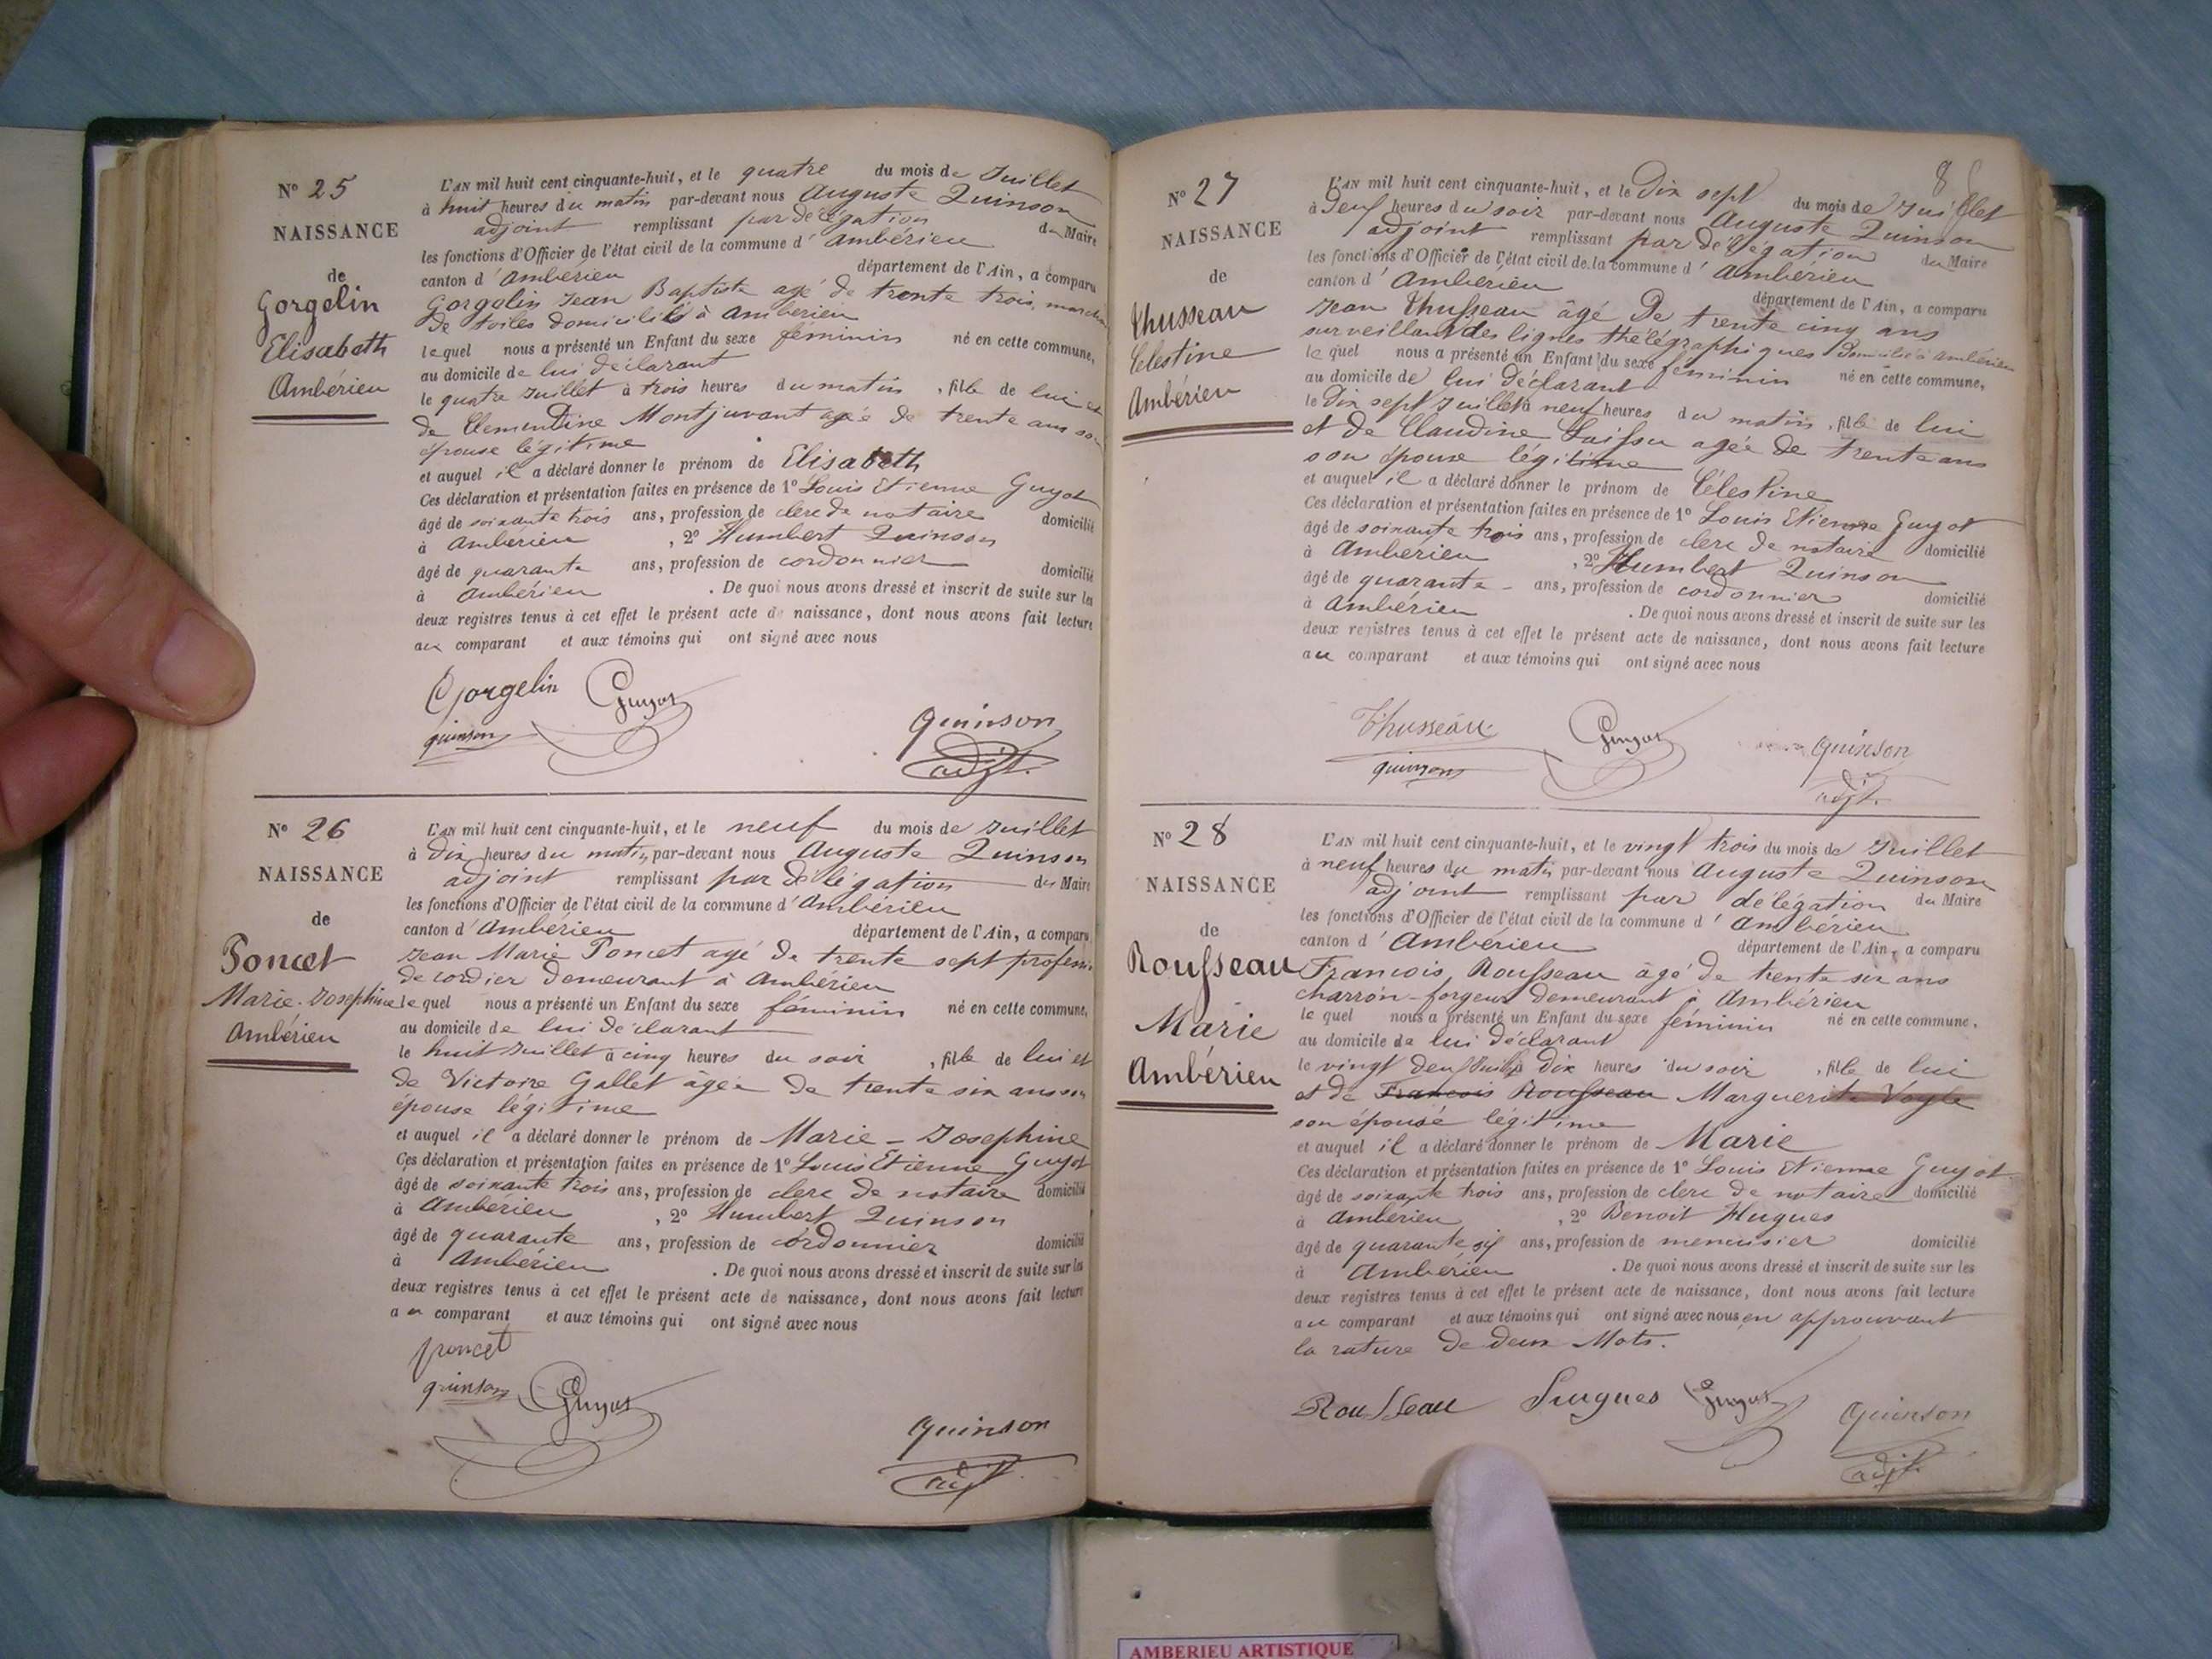 Nº 25
NAISSANCE
de
Gorgelin
Elisabeth
Ambérieu
L'AN mil huit cent cinquante-huit, et le quatre du mois de Juillet
à huit heures du matin par-devant nous Auguste Quinson
adjoint remplissant par délégation du Maire
les fonctions d'Officier de l'état civil de la commune d'Ambérieu
canton d'Ambérieu département de l'Ain, a comparu
Gorgelin Jean Baptiste agé de trente trois, marchand
de toiles domicilié à Ambérieu
lequel nous a présenté un Enfant du sexe féminin né en cette commune,
au domicile de lui déclarant
le quatre Juillet à trois heures du matin, fille de lui et
de Clementine Montjuvant agée de trente ans son
épouse légitime
et auquel il a déclaré donner le prénom de Elisabeth
Ces déclaration et présentation faites en présence de 1º Louis Etienne Guyot
âgé de soixante trois ans, profession de clerc de notaire domicilié
à Ambérieu, 2º Humbert Quinson
âgé de quarante ans, profession de cordonnier domicilié
à Ambérieu. De quoi nous avons dressé et inscrit de suite sur les
deux registres tenus à cet effet le présent acte de naissance, dont nous avons fait lecture
au comparant et aux témoins qui ont signé avec nous
Gorgelin Guyot
quinson quinson
adjt.
Nº 26
NAISSANCE
de
Poncet
Marie-Josephine
Ambérieu
L'AN mil huit cent cinquante-huit, et le neuf du mois de Juillet
à dix heures du matin, par-devant nous Auguste Quinson
adjoint remplissant par délégation du Maire
les fonctions d'Officier de l'état civil de la commune d'Ambérieu
canton d'Ambérieu département de l'Ain, a comparu
Jean Marie Poncet agé de trente sept profession
de cordier demeurant à Ambérieu
lequel nous a présenté un Enfant du sexe féminin né en cette commune,
au domicile de lui déclarant
le huit Juillet à cinq heures du soir, fille de lui et
de Victoire Gallet âgée de trente six ans son
épouse légitime
et auquel il a déclaré donner le prénom de Marie - Josephine
Ces déclaration et présentation faites en présence de 1º Louis Etienne Guyot
âgé de soixante trois ans, profession de clerc de notaire domicilié
à Ambérieu, 2º Humbert Quinson
âgé de quarante ans, profession de cordonnier domicilié
à Ambérieu. De quoi nous avons dressé et inscrit de suite sur les
deux registres tenus à cet effet le présent acte de naissance, dont nous avons fait lecture
au comparant et aux témoins qui ont signé avec nous
poncet
quinson Guyot
quinson
adjt
8
Nº 27
NAISSANCE
de
Thusseau
Celestine
Ambérieu
L'AN mil huit cent cinquante-huit, et le dix sept du mois de Juillet
à heures du soir par-devant nous Auguste Quinson
adjoint remplissant par délégation du Maire
les fonctions d'Officier de l'état civil de la commune d'Ambérieu
canton d'Ambérieu département de l'Ain, a comparu
Jean Thusseau âgé De trente cinq ans
surveillant des lignes thélégraphiques domicilié à Ambérieu
lequel nous a présenté un Enfant du sexe féminin né en cette commune,
au domicile de lui déclarant
le dix sept Juillet à neuf heures du matin, fille de lui
et de Claudine agée de trente ans
son épouse légitime
et auquel il a déclaré donner le prénom de Célestine
Ces déclaration et présentation faites en présence de 1º Louis Etienne Guyot
âgé de soixante trois ans, profession de clerc de notaire domicilié
à Ambérieu, 2º Humbert Quinson
âgé de quarante - ans, profession de cordonnier domicilié
à Ambérieu. De quoi nous avons dressé et inscrit de suite sur les
deux registres tenus à cet effet le présent acte de naissance, dont nous avons fait lecture
au comparant et aux témoins qui ont signé avec nous
Thusseau Guyot quinson
quinson adjt.
Nº 28
NAISSANCE
de
Rousseau
Marie
Ambérieu
L'AN mil huit cent cinquante-huit, et le vingt trois du mois de Juillet
à neuf heures du matin par-devant nous Auguste Quinson
adjoint remplissant par délégation du Maire
les fonctions d'Officier de l'état civil de la commune d'Ambérieu
canton d'Ambérieu département de l'Ain, a comparu
Francois Rousseau âgé de trente six ans
charron-forgeur demeurant à Ambérieu
lequel nous a présenté un Enfant du sexe féminin né en cette commune,
au domicile de lui déclarant
le vingt deux Juillet à dix heures du soir, fille de lui
et de Francois Rousseau Marguerite Vogle
son épouse légitime
et auquel il a déclaré donner le prénom de Marie
Ces déclaration et présentation faites en présence de 1º Louis Etienne Guyot
âgé de soixante trois ans, profession de clerc de notaire domicilié
à Ambérieu, 2º Benoit Hugues
âgé de quarante six ans, profession de menuisier domicilié
à Ambérieu. De quoi nous avons dressé et inscrit de suite sur les
deux registres tenus à cet effet le présent acte de naissance, dont nous avons fait lecture
au comparant et aux témoins qui ont signé avec nous en approuvant
la rature de deux Mots.
Rousseau hugues Guyot quinson
adjt.
AMBERIEU ARTISTIQUE